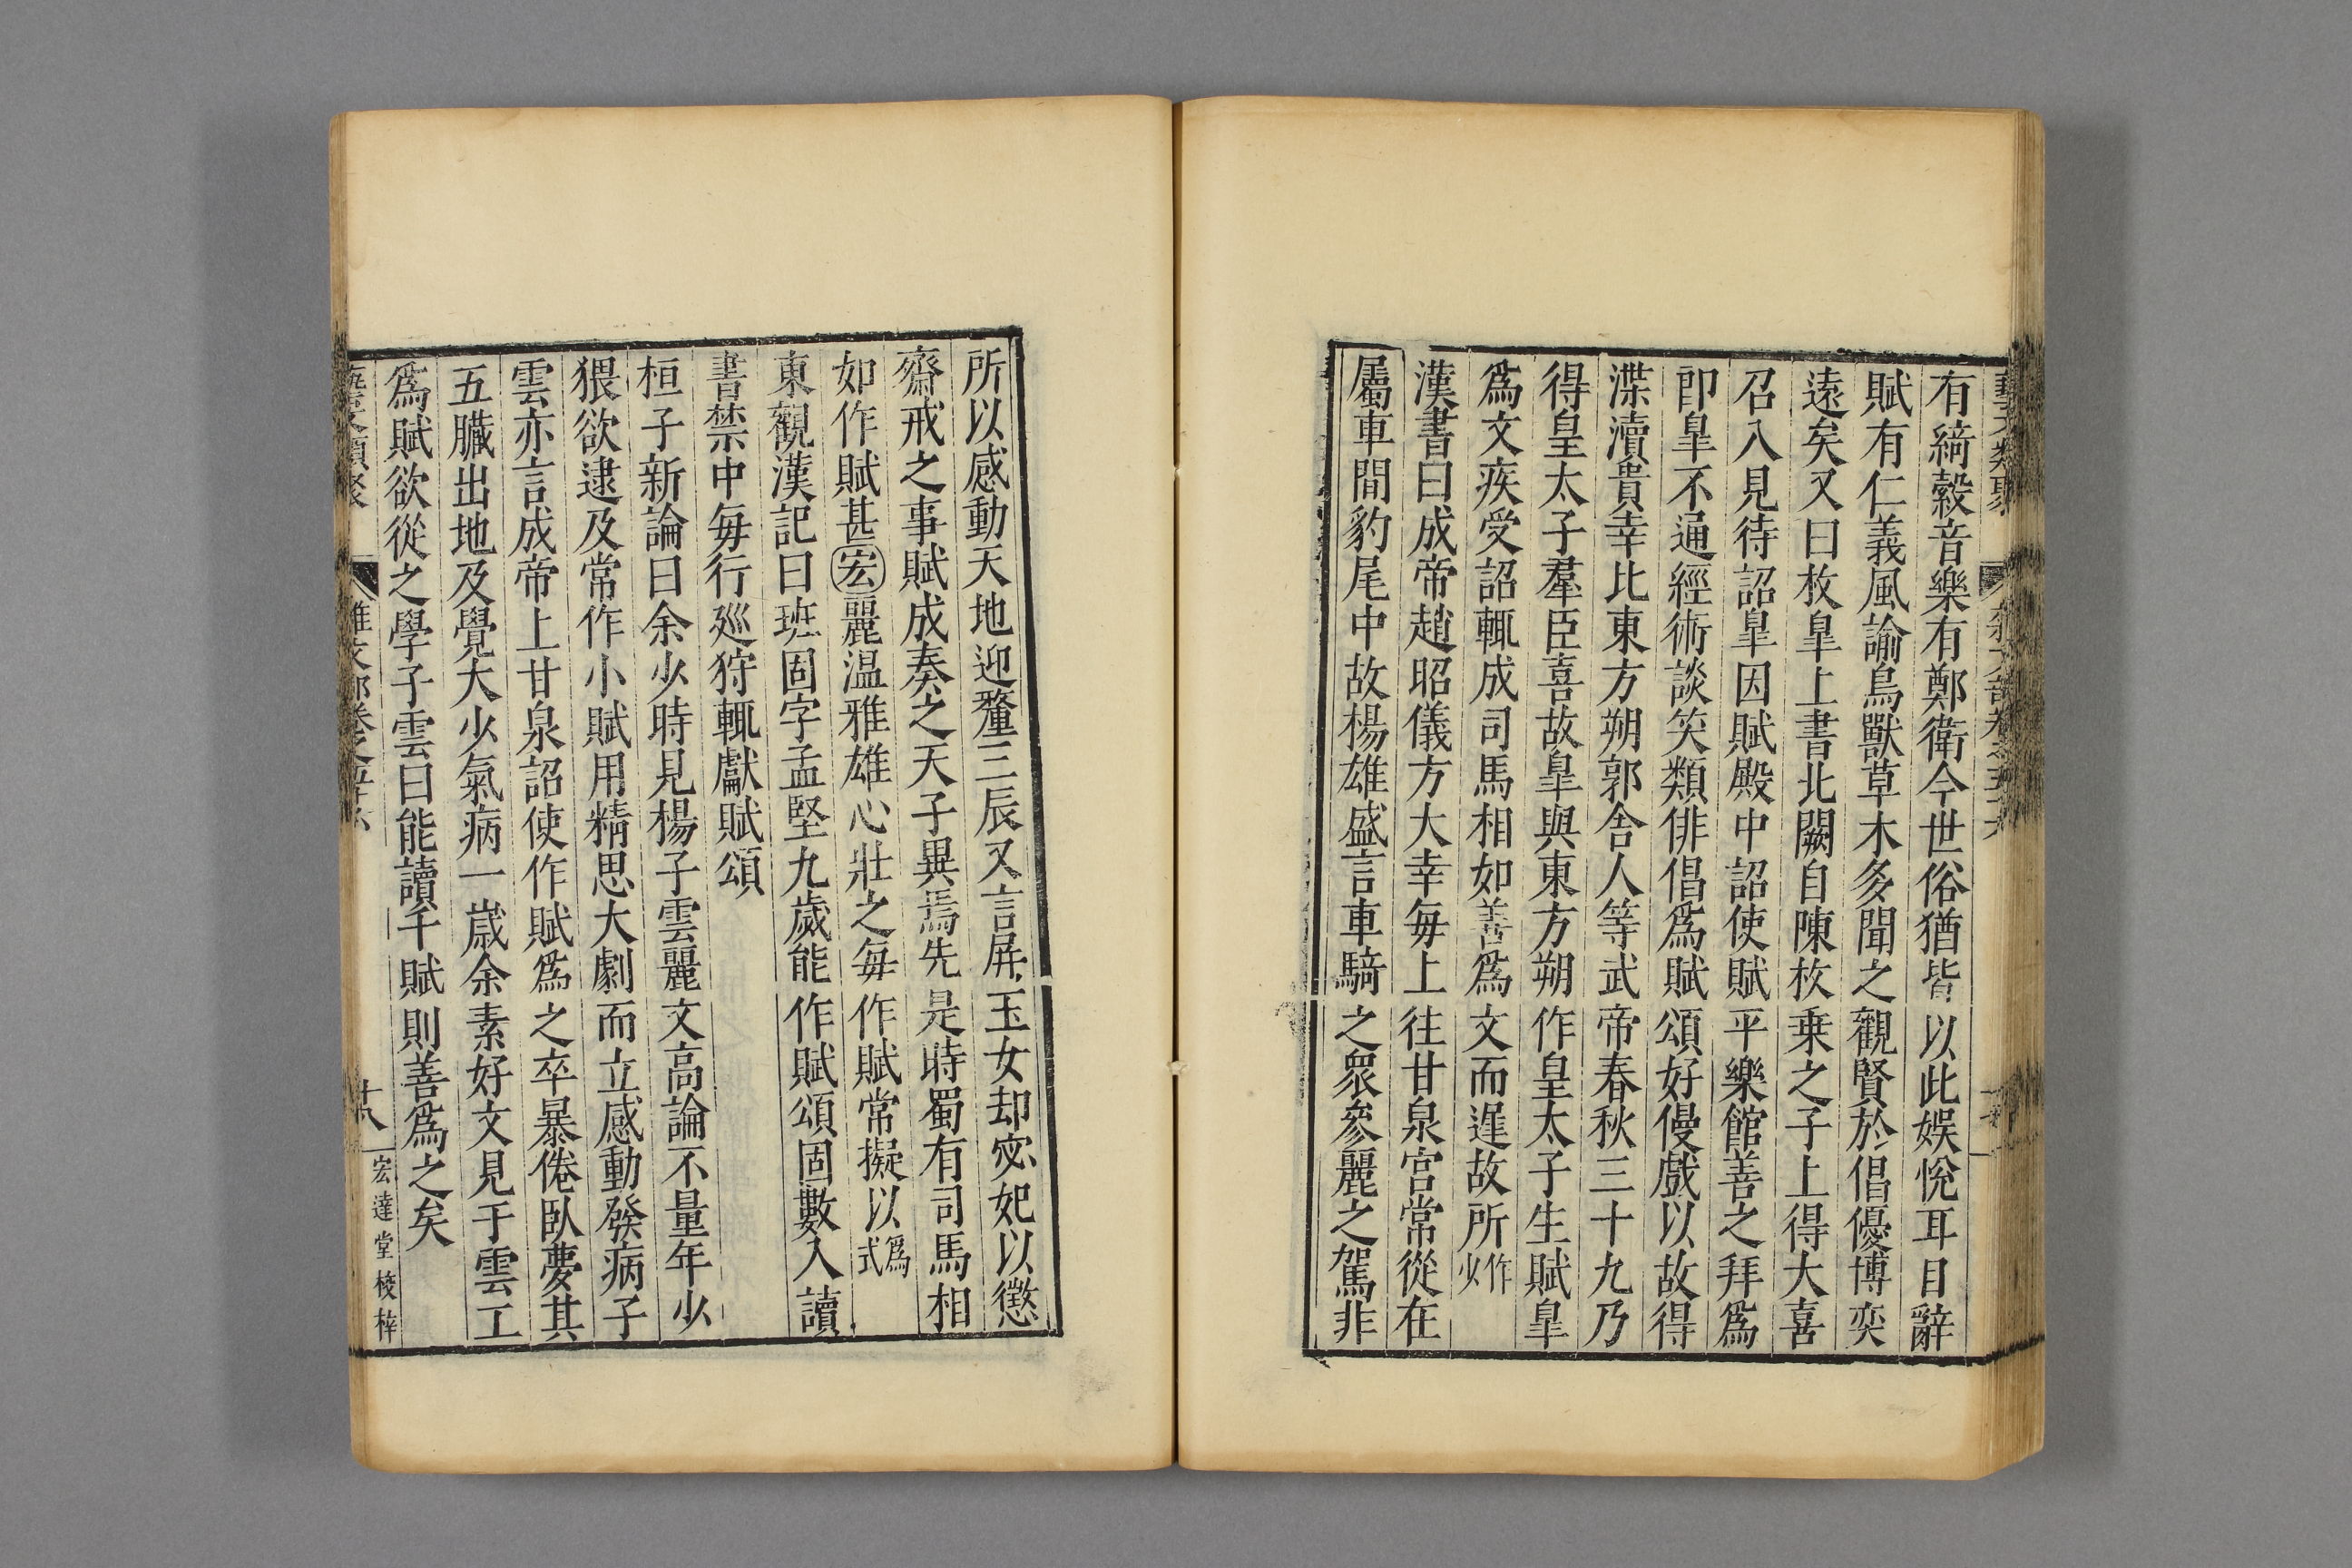 有綺縠音樂有鄭衛今世俗猶皆以此娛悅耳目辭
賦有仁義風諭鳥獸草木多聞之觀賢於倡優博奕
遠矣又曰枚臯上書北闕自陳枚乗之子上得大喜
召入見待詔臯因賦殿中詔使賦平樂館善之拜爲
卽臯不通經術談笑類俳倡爲賦頌好僈戲以故得
渫瀆貴幸比東方朔郭舍人等武帝春秋三十九乃
得皇太子羣臣喜故臯與東方朔作皇太子生賦臯
爲文疾受詔輒成司馬相如善爲文而遲故所作少
漢書曰成帝趙昭儀方大幸每上徃甘泉宫常從在
屬車間豹尾中故楊雄盛言車騎之衆參麗之駕非
所以感動天地迎釐三辰又言屏玉女却宓妃以懲
齋戒之事賦成奏之天子異焉先是時蜀有司馬相
如作賦甚宏麗温雅雄心壯之每作賦常擬以爲式
東觀漢記曰班固字孟堅九歲能作賦頌固數入讀
書禁中每行廵狩輒獻賦頌
桓子新論曰余少時見楊子雲麗文高論不量年少
猥欲逮及常作小賦用精思大劇而立感動發病子
雲亦言成帝上甘泉詔使作賦爲之卒暴倦臥夢其
五臟出地及覺大少氣病一歲余素好文見于雲工
爲賦欲從之學子雲曰能讀千賦則善爲之矣
十八
宏達堂校梓